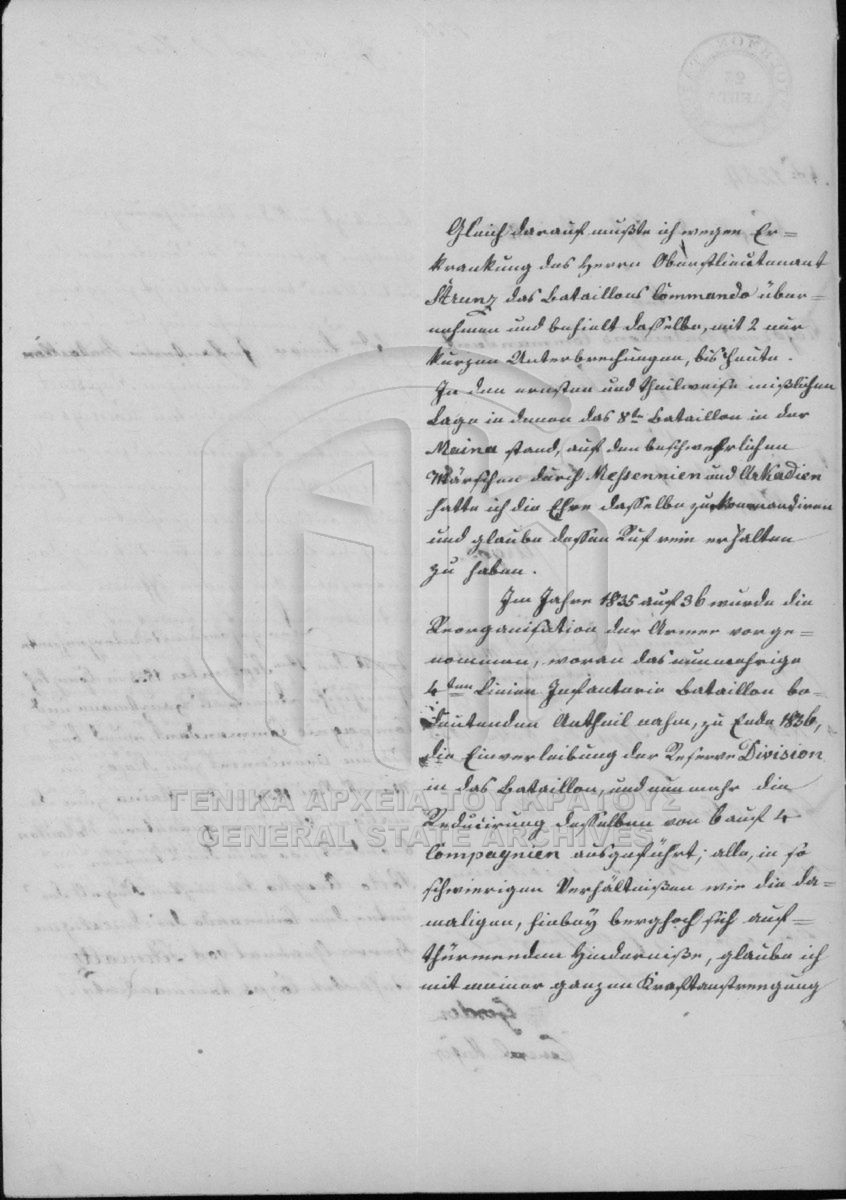 Gleich darauf mußte ich wegen Er=
krankung des Herrn Oberstlieutenant
Strunz das Bataillons Commando über-
nehmen und behielt dasselbe, mit 2 nur
kurzen Unterbrechungen, bis heute.
In den ernsten und theilweise mißlichen
Lage in denen das 8te Bataillon in der
Maina stand, auf den beschwehrlichen
Märschen durch Messennien und Arkadien
hatte ich die Ehre dasselbe zu kommandiren
und glaube dessen Ruf rein erhalten
zu haben.
Im Jahre 1835 auf 36 wurde die
Reorganisation der Armee vorge=
nommen, woran das nunmehrige
4ten Linien Infanterie Bataillon be-
deutenden Antheil nahm, zu Ende 1836,
die Einverleibung der Reserve Division
in das Bataillon, und nunmehr die
Reducirung desselben von 6 auf 4
Compagnien ausgeführt; alle, in so
schwierigen Verhältnißen wie die da-
maligen, hiebey berghoch sich auf-
thürmenden Hinderniße, glaube ich
mit meiner ganzen Kraftanstrengung
ΓΕΝΙΚΑ ΑΡΧΕΙΑ ΤΟΥ ΚΡΑΤΟΥΣ
GENERAL STATE ARCHIVES